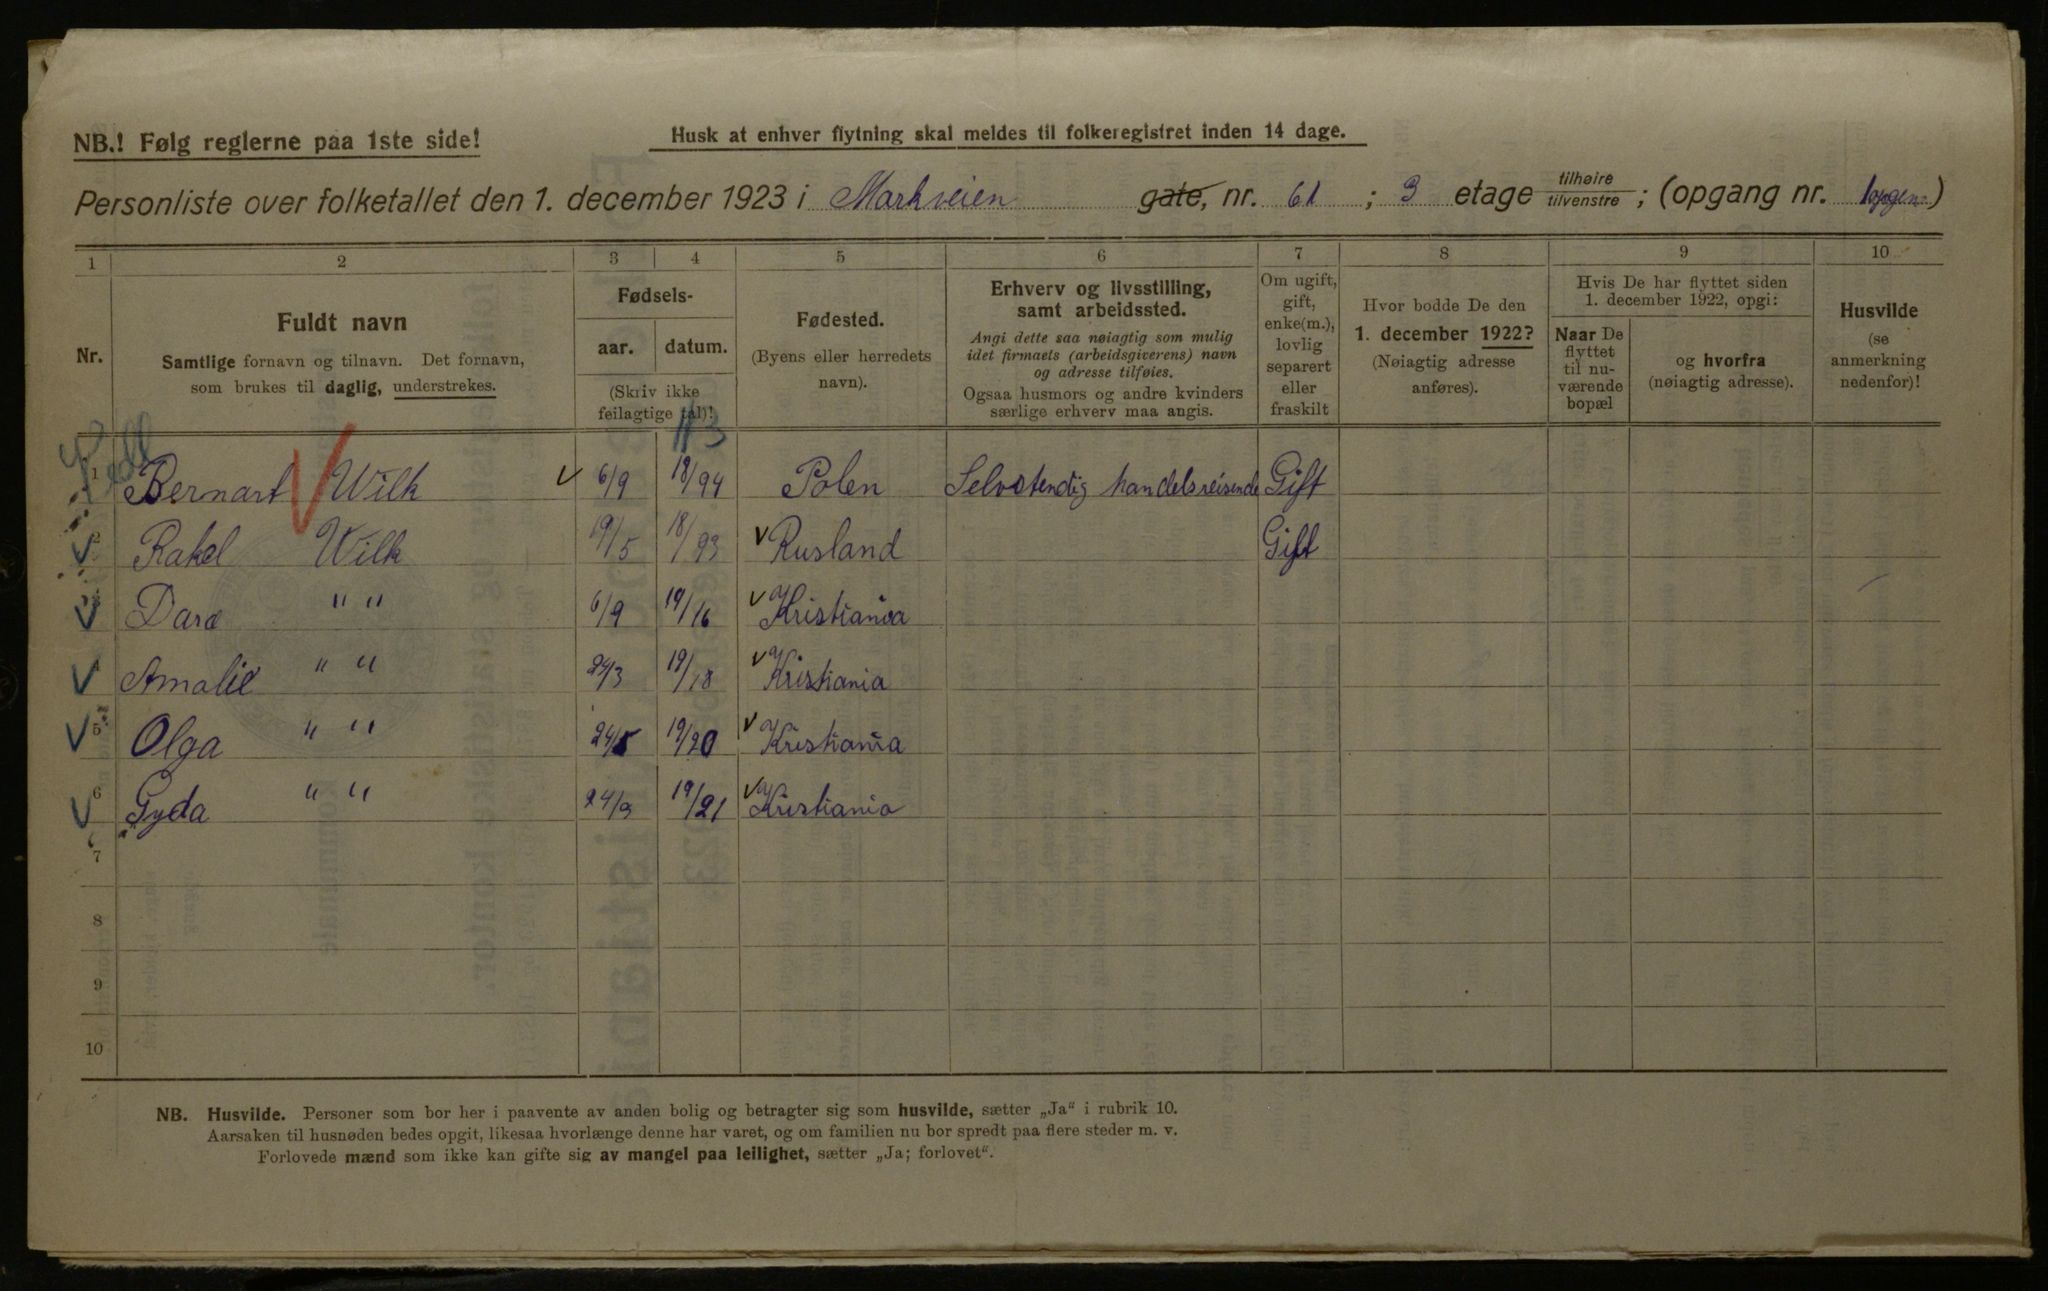 NB.! Følg reglerne paa 1ste side!
Husk at enhver flytning skal meldes til folkeregistret inden 14 dage.
Personliste over folketallet den 1. december 1923 i Markveien gate, nr. 61 ; 3 etage tilhøire tilvenstre ; (opgang nr. )
1 2 3 4 5 6 7 8 9 10
Nr.
Fuldt navn
Samtlige fornavn og tilnavn. Det fornavn,
som brukes til daglig, understrekes.
Fødsels-
aar. datum.
(Skriv ikke
feilagtige tal)!
Fødested.
(Byens eller herredets
navn).
Erhverv og livsstilling,
samt arbeidssted.
Angi dette saa nøiagtig som mulig
idet firmaets (arbeidsgiverens) navn
og adresse tilføies.
Ogsaa husmors og andre kvinders
særlige erhverv maa angis.
Om ugift,
gift,
enke(m.),
lovlig
separert
eller
fraskilt
Hvor bodde De den
1. december 1922?
(Nøiagtig adresse
anføres).
Hvis De har flyttet siden
1. december 1922, opgi:
Naar De
flyttet
til nu-
værende
bopæl
og hvorfra
(nøiagtig adresse).
Husvilde
(se
anmerkning
nedenfor)!
1 Bernart Wilk 6/9 18/94 Polen Selvstendig handelsreisende Gift
2 Rakel Wilk 19/5 18/93 Rusland Gift
Dara " " 6/9 19/16 Kristiania
4 Amalie " " 24/3 19/18 Kristiania
5 Olga " " 24/5 19/20 Kristiania
6 Gyda " " 24/9 19/21 Kristiania
7
8
9
10
NB. Husvilde. Personer som bor her i paavente av anden bolig og betragter sig som husvilde, sætter „Ja" i rubrik 10.
Aarsaken til husnøden bedes opgit, likesaa hvorlænge denne har varet, og om familien nu bor spredt paa flere steder m. v.
Forlovede mænd som ikke kan gifte sig av mangel paa leilighet, sætter „Ja; forlovet".